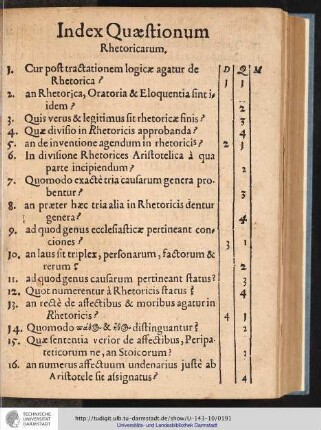 Index Quæstionum
Rhetoricarum,
D Q M
1. Cur post tractationem logicæ agatur de
Rhetorica? 1 1
2. an Rhetorica, Oratoria & Eloquentia sint i-
dem? 2
3. Quis verus & legitimus sit rhetoricæ finis? 3
4. Quæ divisio in Rhetoricis approbanda? 4
5. an de inventione agendum in rhetoricis? 2 1
6. In divisione Rhetorices Aristotelica à qua
parte incipiendum? 2
7. Quomodo exactè tria causarum genera pro-
bentur? 3
8. an præter hæc tria alia in Rhetoricis dentur
genera? 4
9. ad quod genus ecclesiasticæ pertineant con-
ciones? 3 1
10. an laus sit triplex, personarum, factorum &
rerum? 2
11. ad quod genus causarum pertineant status? 3
12. Quot numerentur à Rhetoricis status? 4
13. an rectè de affectibus & moribus agatur in
Rhetoricis? 4 1
14. Quomodo & distinguantur? 2
15. Quæ sententia verior de affectibus, Peripa-
teticorum ne, an Stoicorum? 3
16. an numerus affectuum undenarius justè ab
Aristotele sit assignatus? 4
TECHNISCHE
UNIVERSITÄT
DARMSTADT
http://tudigit.ulb.tu-darmstadt.de/show/U-143-10/0191
Universitäts- und Landesbibliothek Darmstadt